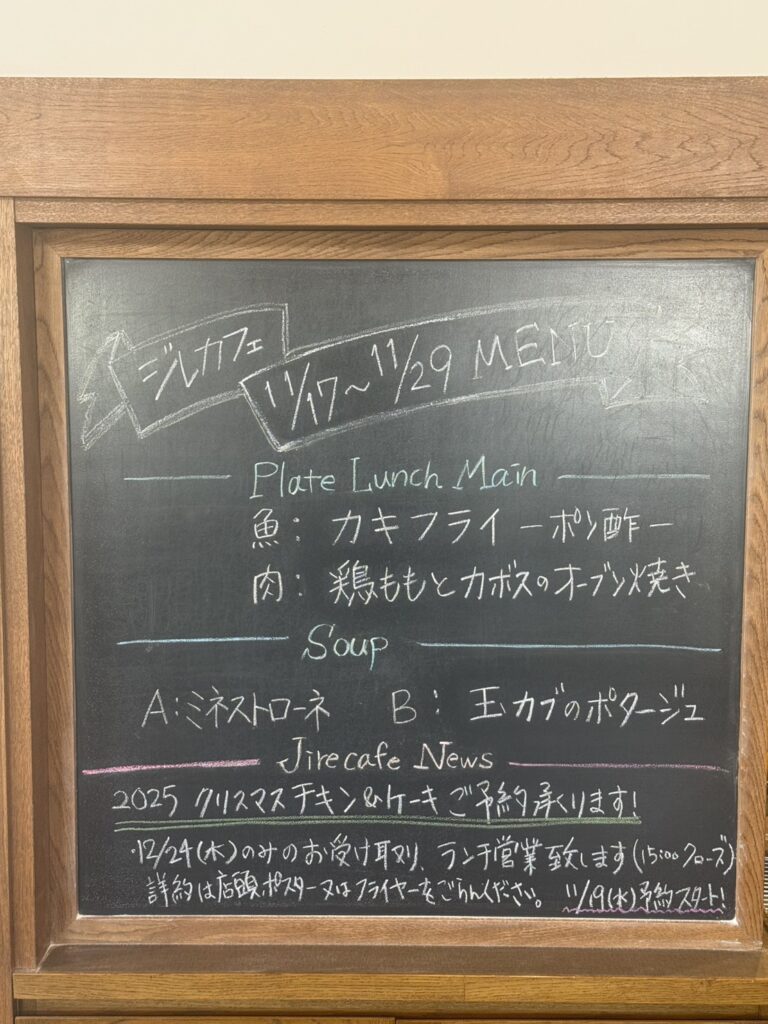 ジルカフェ
11/17〜11/29 MENU
Plate Lunch Main
魚: カキフライーポン酢ー
肉: 鶏ももとカボスのオーブン焼き
Soup
A:ミネストローネ B: 玉カブのポタージュ
Jirecafe News
2025 クリスマスチキン&ケーキご予約承ります!
・12/24(水)のみのお受け取り、ランチ営業致します(15:00クローズ)
詳約は店頭ポスター又はフライヤーをごらんください。 11/19(水)予約スタート!